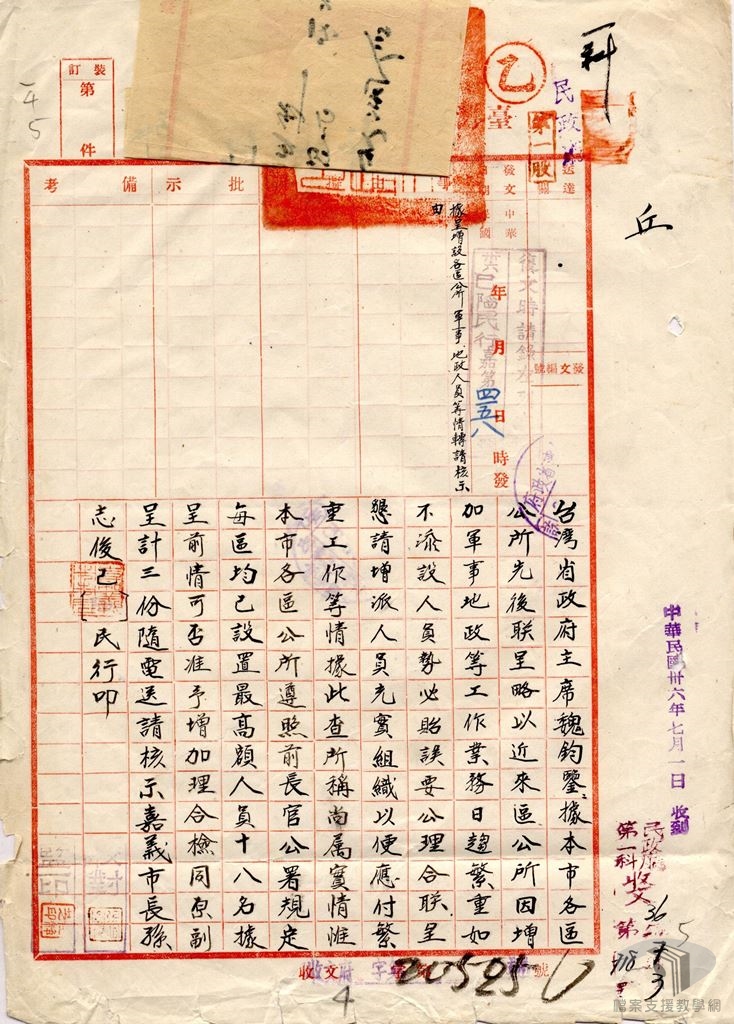 一科
丘
乙
民政
第一股
臺
裝訂
第
件
45
送達
發文
中華
國
年
月
日
時發
發文
編號
復文時請錄
巳陷民行嘉第
四五八
事
由
擬
批示
備考
據呈增設各區公所軍事地政人員等情轉請核示
由
台灣省政府主席魏鈞鑒:據本市各區
公所先後联呈略以近來區公所因增
加軍事地政等工作業務日趨繁重如
不派設人員勢必貽誤要公理合联呈
懇請增派人員充實組織以便應付繁
重工作等情據此查所稱尚属實情惟
本市各區公所遵照前長官公署規定
每區均已設置最高額人員十八名據
呈前情可否准予增加理合檢同原副
呈計三份隨電送請核示嘉義市長孫
志俊已民行叩
中華民國卅六年七月一日收到
民政處
第一科收
36
第
918
73
5
校對
收文府字第20525號
4
檔案支援教學網